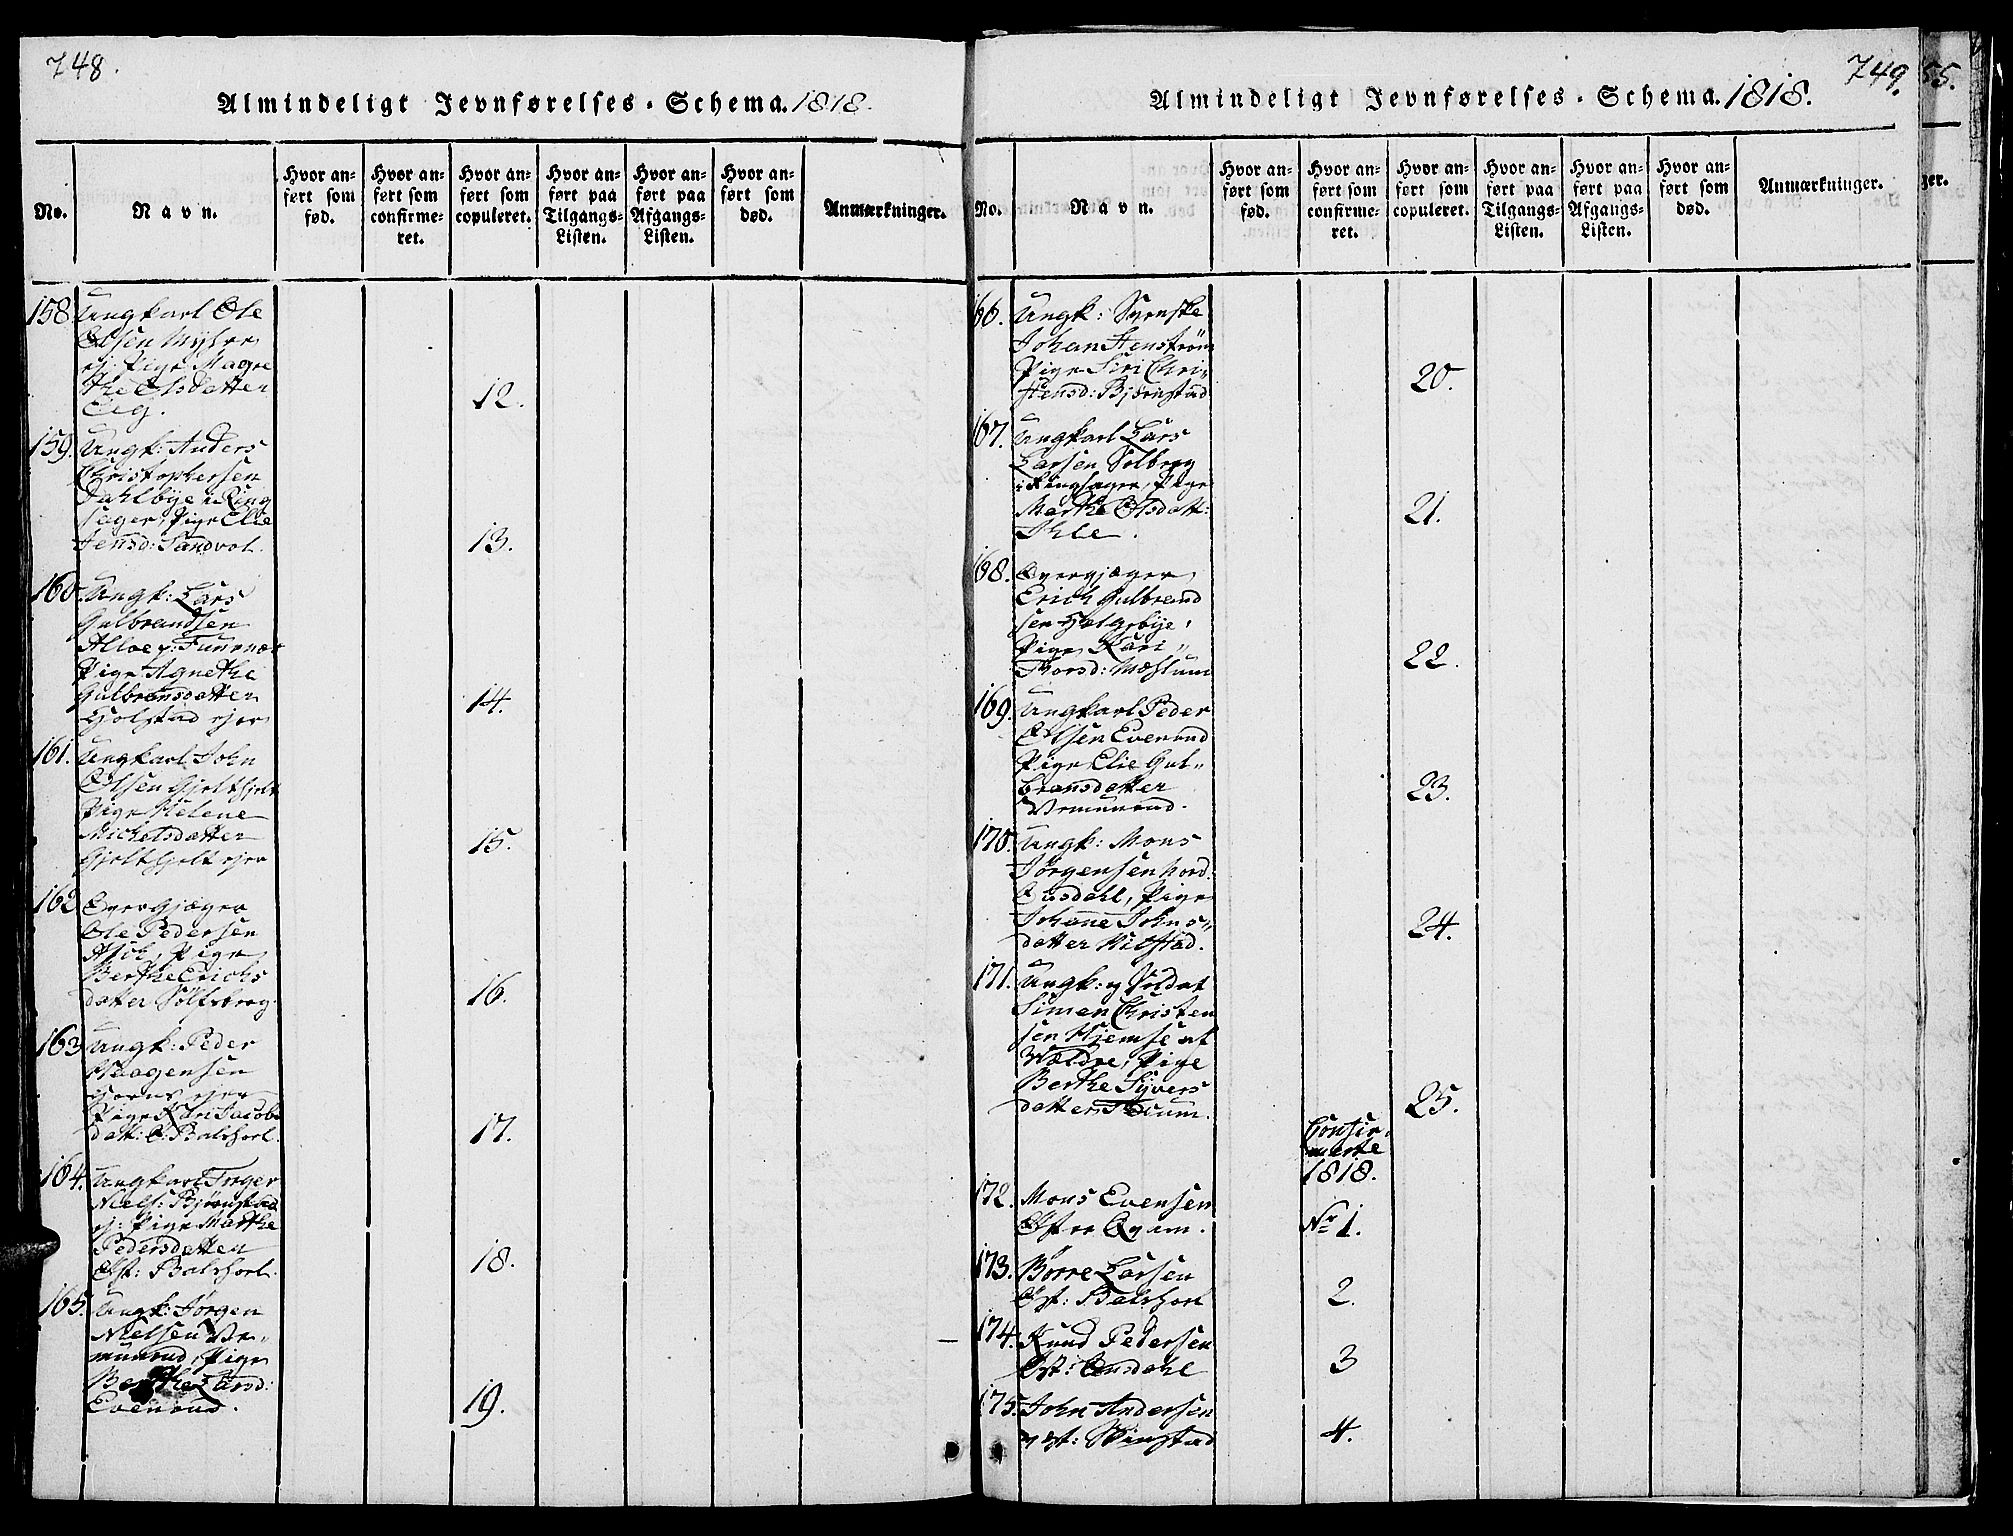 748.
Almindeligt Jevnførelses-Schema. 1818.
No.
Navn.
Hvor an-
ført som
fød.
Hvor an-
ført som
confirme-
ret.
Hvor an-
ført som
copuleret.
Hvor an-
ført paa
Tilgangs-
Listen.
Hvor an-
ført paa
Afgangs-
Listen.
Hvor an-
ført som
død.
Anmærkninger.
158. Ungkarl Ole
Olsen
ej: Pige Magre
the Olsdatter
Eeg. 12.
159. Ungk: Anders
Christophersen
Dahlbye i Ring
sager, Pige Elie
Jensd: Sandvol. 13.
160. Ungk: Lars
Gulbrandsen
Pige Agnethe
Gulbransdatter
Holstad ejer 14.
161. Ungkarl John
Olsen
Pige Helene
Michelsdatter
ejer 15.
162 Overgjæger
Ole Pedersen
Pige
Berthe Erichs
datter 16.
163 Ungk: Peder
Haagensen
ejer
Pige Kari Jacobs
datt: 17.
164. Ungkarl
Niels: Bjørnstad
ej: Pige Marthe
Pedersdatter
Øst: 18.
165. Ungk: Jørgen
Nielsen Ve-
munrud, Pige
Berthe Larsd:
Evenrud. 19.
749.
Almindeligt Jevnførelses-Schema. 1818.
No.
Navn.
Hvor an-
ført som
fød.
Hvor an-
ført som
confirme-
ret.
Hvor an-
ført som
copuleret.
Hvor an-
ført paa
Tilgangs-
Listen.
Hvor an-
ført paa
Afgangs-
Listen.
Hvor an-
ført som
død.
Anmærkninger.
166. Ungk: Svenske
Johan Stenstrøm
Pige Siri Chri-
stensd: Bjørnstad 20.
167. Ungkarl Lars
Larsen Solberg
i Ringsager, Pige
Marthe Olsdatt:
Ihle. 21.
168. Overgjæger
Erich Gulbrand
sen Helgebye,
Pige Kari
Thorsd: Mæhlum 22.
169. Ungkarl Peder
Olsen Evenrud
Pige Elie Gul-
bransdatter
Vemunrud. 23.
170. Ungk: Mons
Jørgensen Nord
Pige
Johanne Johns-
datter 24.
171. Ungk: og Soldat
Simen Christen
sen Hjemse at
Pige
Berthe Syvers
datter 25.
Confir-
merte
1818.
172. Mons Evensen
Østre Qvam. No 1.
173. Børre Larsen
Øst: 2.
174. Knud Pedersen
Øst: 3
175. John Andersen
4.
55.
ger.